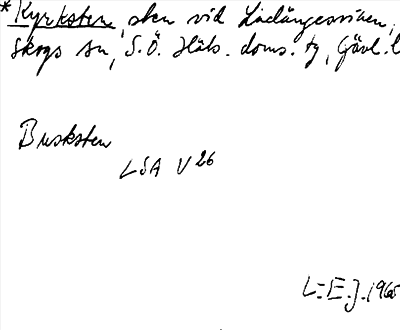 *Kyrksten, sten vid Lindängesviken,
Skogs sn, S.Ö. Häls. doms. tg, Gävl. l
Busksten
LSA V26
L-E.J. 1965